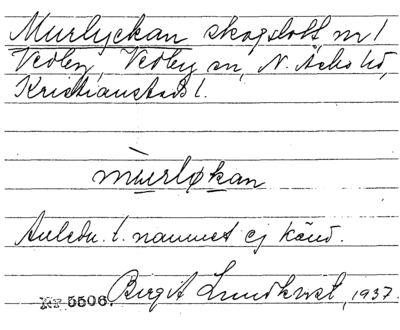 Murlyckan skogslott nr 1
Vedby, Vedby sn, N. Åsbo hd,
Kristianstads l.
mùrløkan
Anledn. t. namnet ej känd.
Nr 5506. Birgit Lundkvist, 1937.